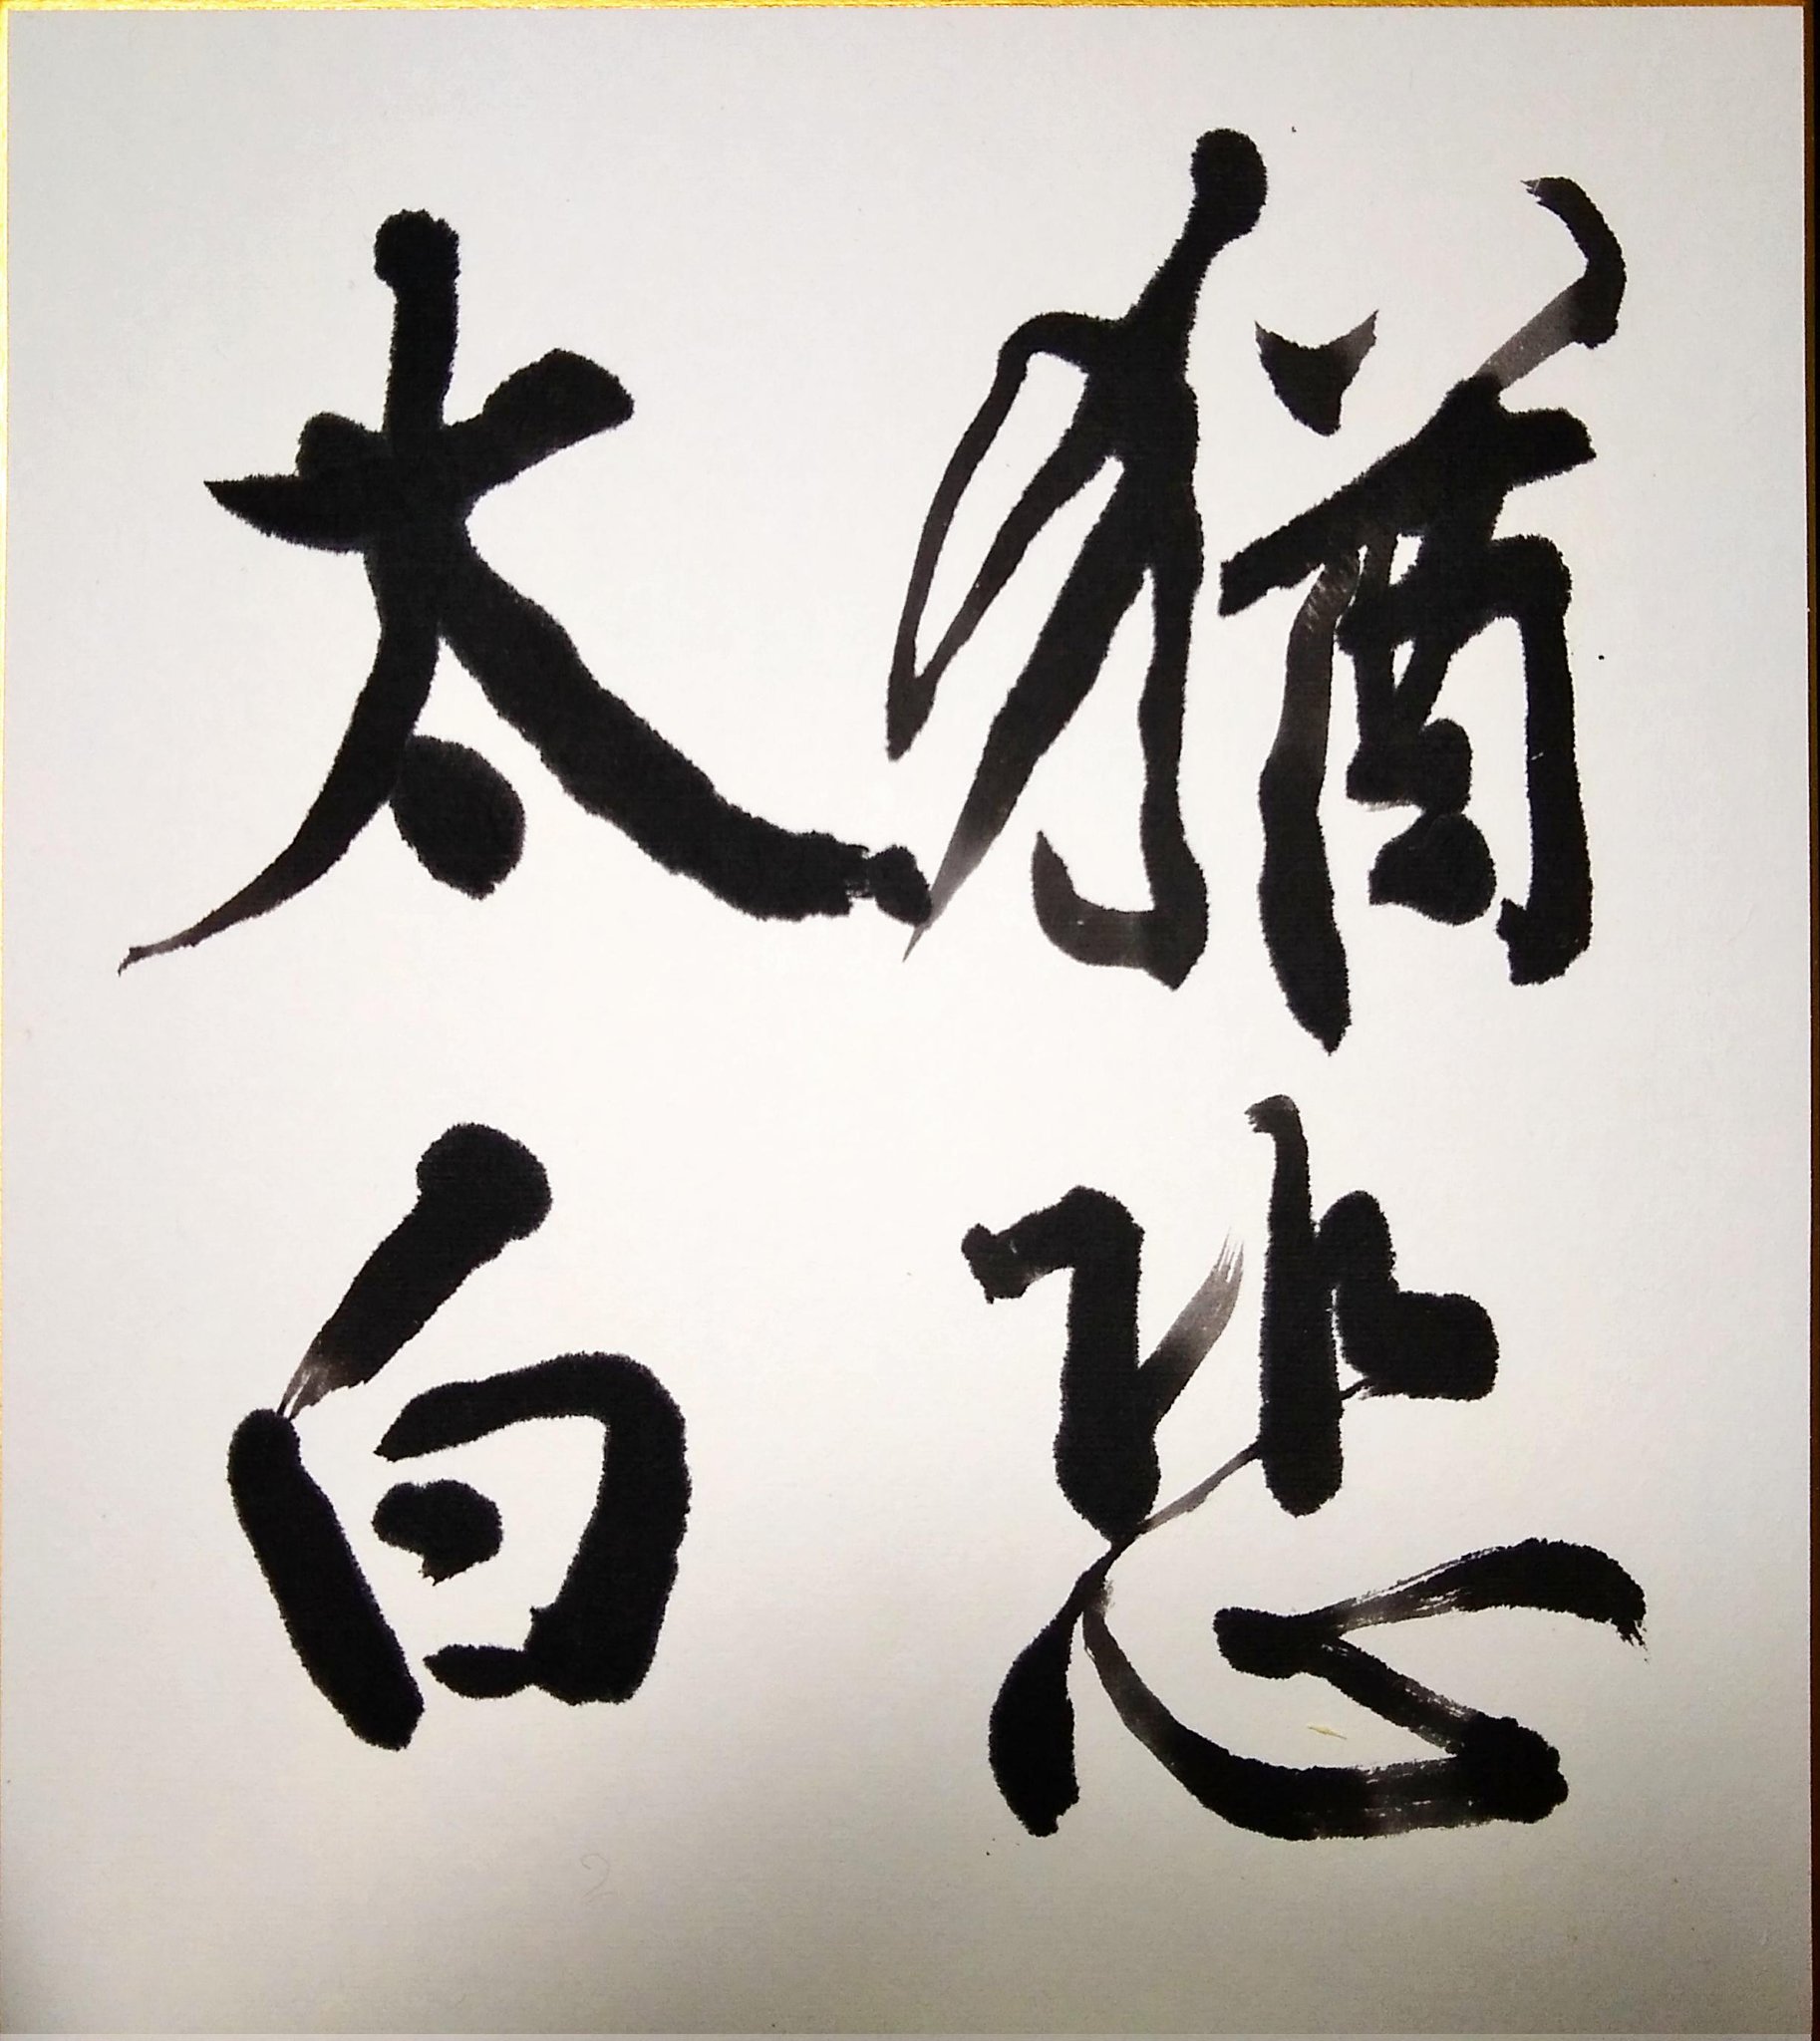 猶悲
太白